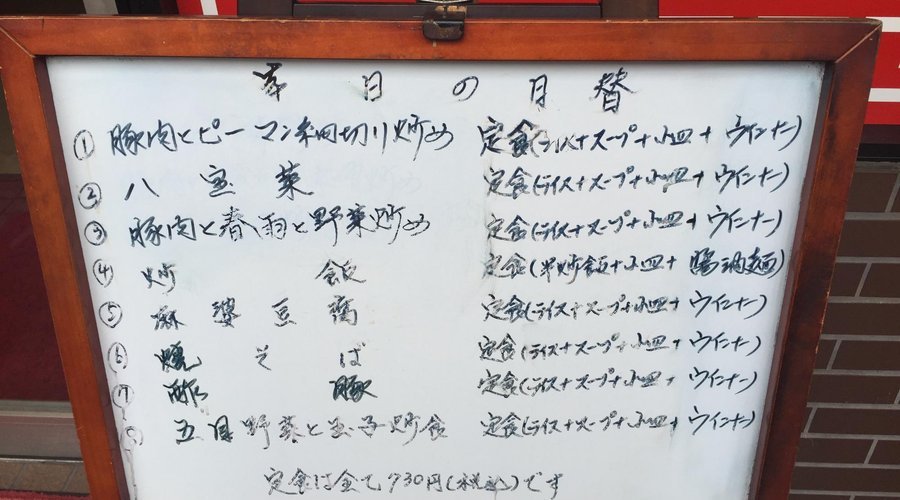 本日の日替
① 豚肉とピーマン細切り炒め 定食(ライス+スープ+小皿+ウインナー)
② 八宝菜 定食(ライス+スープ+小皿+ウインナー)
③ 豚肉と春雨と野菜炒め 定食(ライス+スープ+小皿+ウインナー)
④ 炒飯 定食(半炒飯+小皿+
⑤ 麻婆豆腐 定食(ライス+スープ+小皿+ウインナー)
⑥ 焼そば 定食(ライス+スープ+小皿+ウインナー)
⑦ 酢豚 定食(ライス+スープ+小皿+ウインナー)
⑧ 五目野菜と玉子炒 定食(ライス+スープ+小皿+ウインナー)
定食は全て930円(税込)です